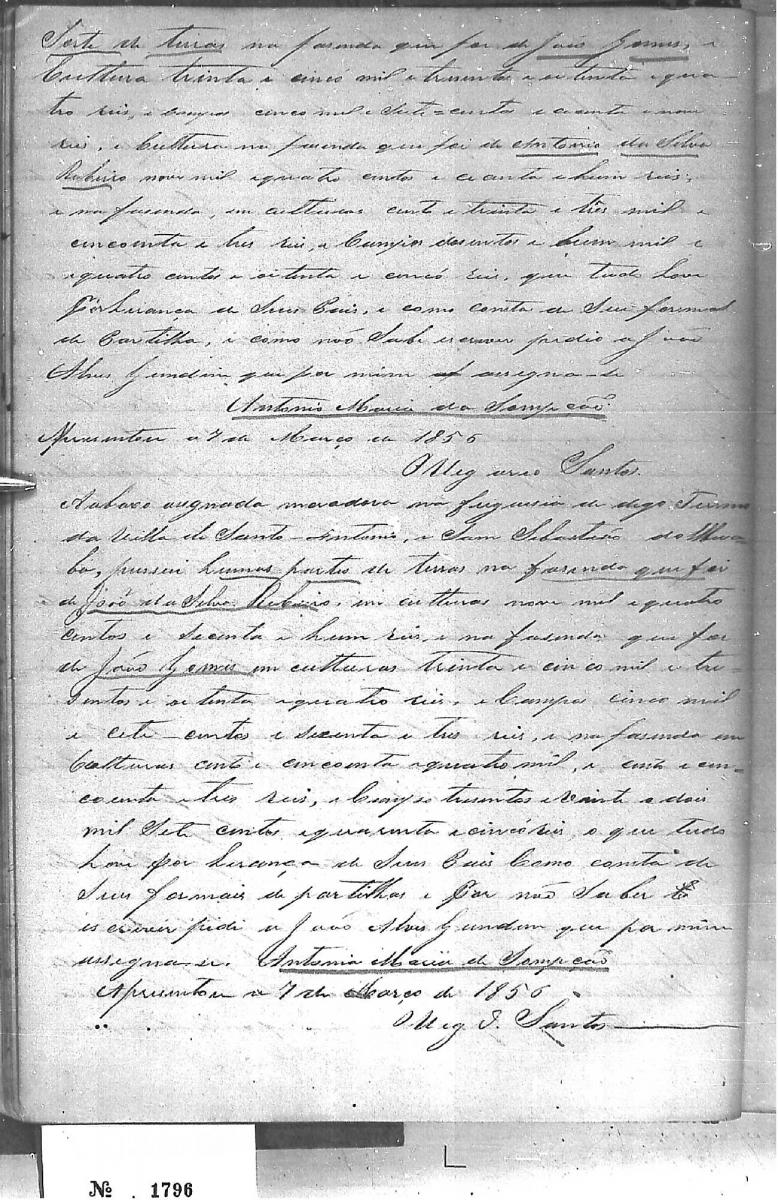 Sorte de terras na fasenda que foi de João Gomes, e
Cultura trinta e cinco mil e tresentos e oitenta e qua-
tro reis, e Campos cinco mil e Sete=centos e cecenta e nove
reis, e Cultura na fasenda que foi de Antonio da Silva
Ribeiro nove mil e quatro centos e cecenta e hum reis,
e na fasenda, em culturas cento e trinta e três mil e
cincoenta e tres reis, e Campos dosentos e hum mil e
e quatro centos e oitenta e cincó reis, que tudo hove
Por herança de Seus Pais, e como consta de Seu formal
de Partilha, e como não Sabe escrever pedio a João
Alves Gundim que por mim assigna-se
Antonio Maria da Sompção
Apresentou a 7 de Março de 1856
Santos
Aabaxo asignada moradora na friguisia de digo Termo
da Villa de Santo-Antonio, e Sam Sebastião do Ubera-
ba, pussui humas partes de terras na fasenda que foi
de João da Silva Ribeiro, em culturas nove mil e quatro
centos e secenta e hum reis, e na fasenda que foi
de João Gomes em culturas trinta e cinco mil e tre-
sentos e oitenta e quatro reis, e Campos cinco mil
e cete-centos e secenta e tres reis, e na fasenda em
Culturas cento e cincoenta e quatro mil, e cento e cin-
coenta e tres reis, e Campo tresentos e vinte e dois
mil Sete centos e quarenta e cincó reis, o que tudo
hove por herança de Seus Pais Como consta de
Seus formais de partilhas e Por não Saber
escrever pedi a João Alves Gundim que por mim
assigna-se. Antonia Maria de Sompção
Apresentou a 7 de Março de 1856
Santos
Nº 1796